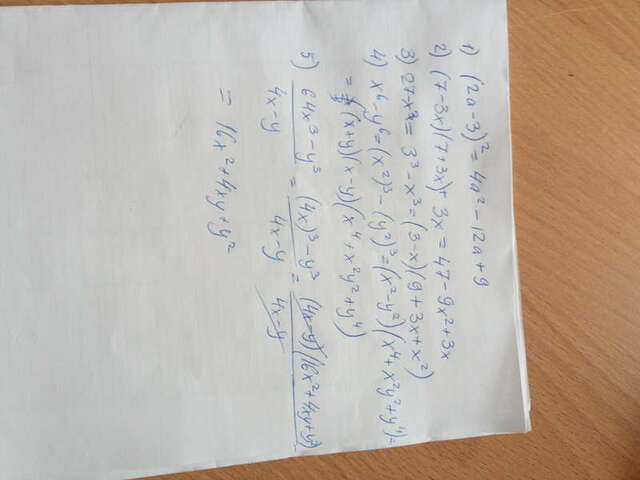 1) (2a-3)² = 4a² - 12a + 9
2) (7-3x)(7+3x)+3x = 47 - 9x² + 3x
3) 27-x³ = 3³ - x³ = (3-x)(9+3x+x²)
4) x⁶-y⁶ = (x²)³ - (y²)³ = (x²-y²)(x⁴+x²y²+y⁴) =
= (x+y)(x-y)(x⁴+x²y²+y⁴)
5) (64x³-y³)/(4x-y) = ((4x)³-y³)/(4x-y) = ((4x-y)(16x²+4xy+y²))/(4x-y)
= 16x²+4xy+y²